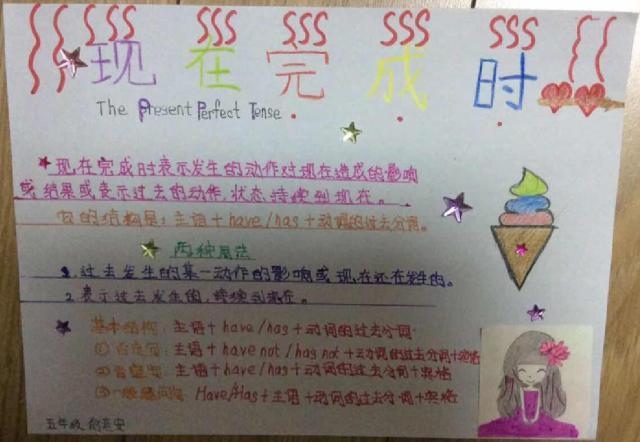 现在完成时
The Present Perfect Tense
现在完成时表示发生的动作对现在造成的影响
或结果或表示过去的动作,状态持续到现在。
它的结构是:主语+have/has+动词的过去分词。
两种用法
1.过去发生的某一动作的影响或现在还在发生的。
2.表示过去发生的,持续到现在。
基本结构:主语+have/has+动词的过去分词
①否定句:主语+have not/has not+动词的过去分词+宾格
②肯定句:主语+have/has+动词的过去分词+宾格
③一般疑问句:Have/Has+主语+动词的过去分词+宾格
五年级